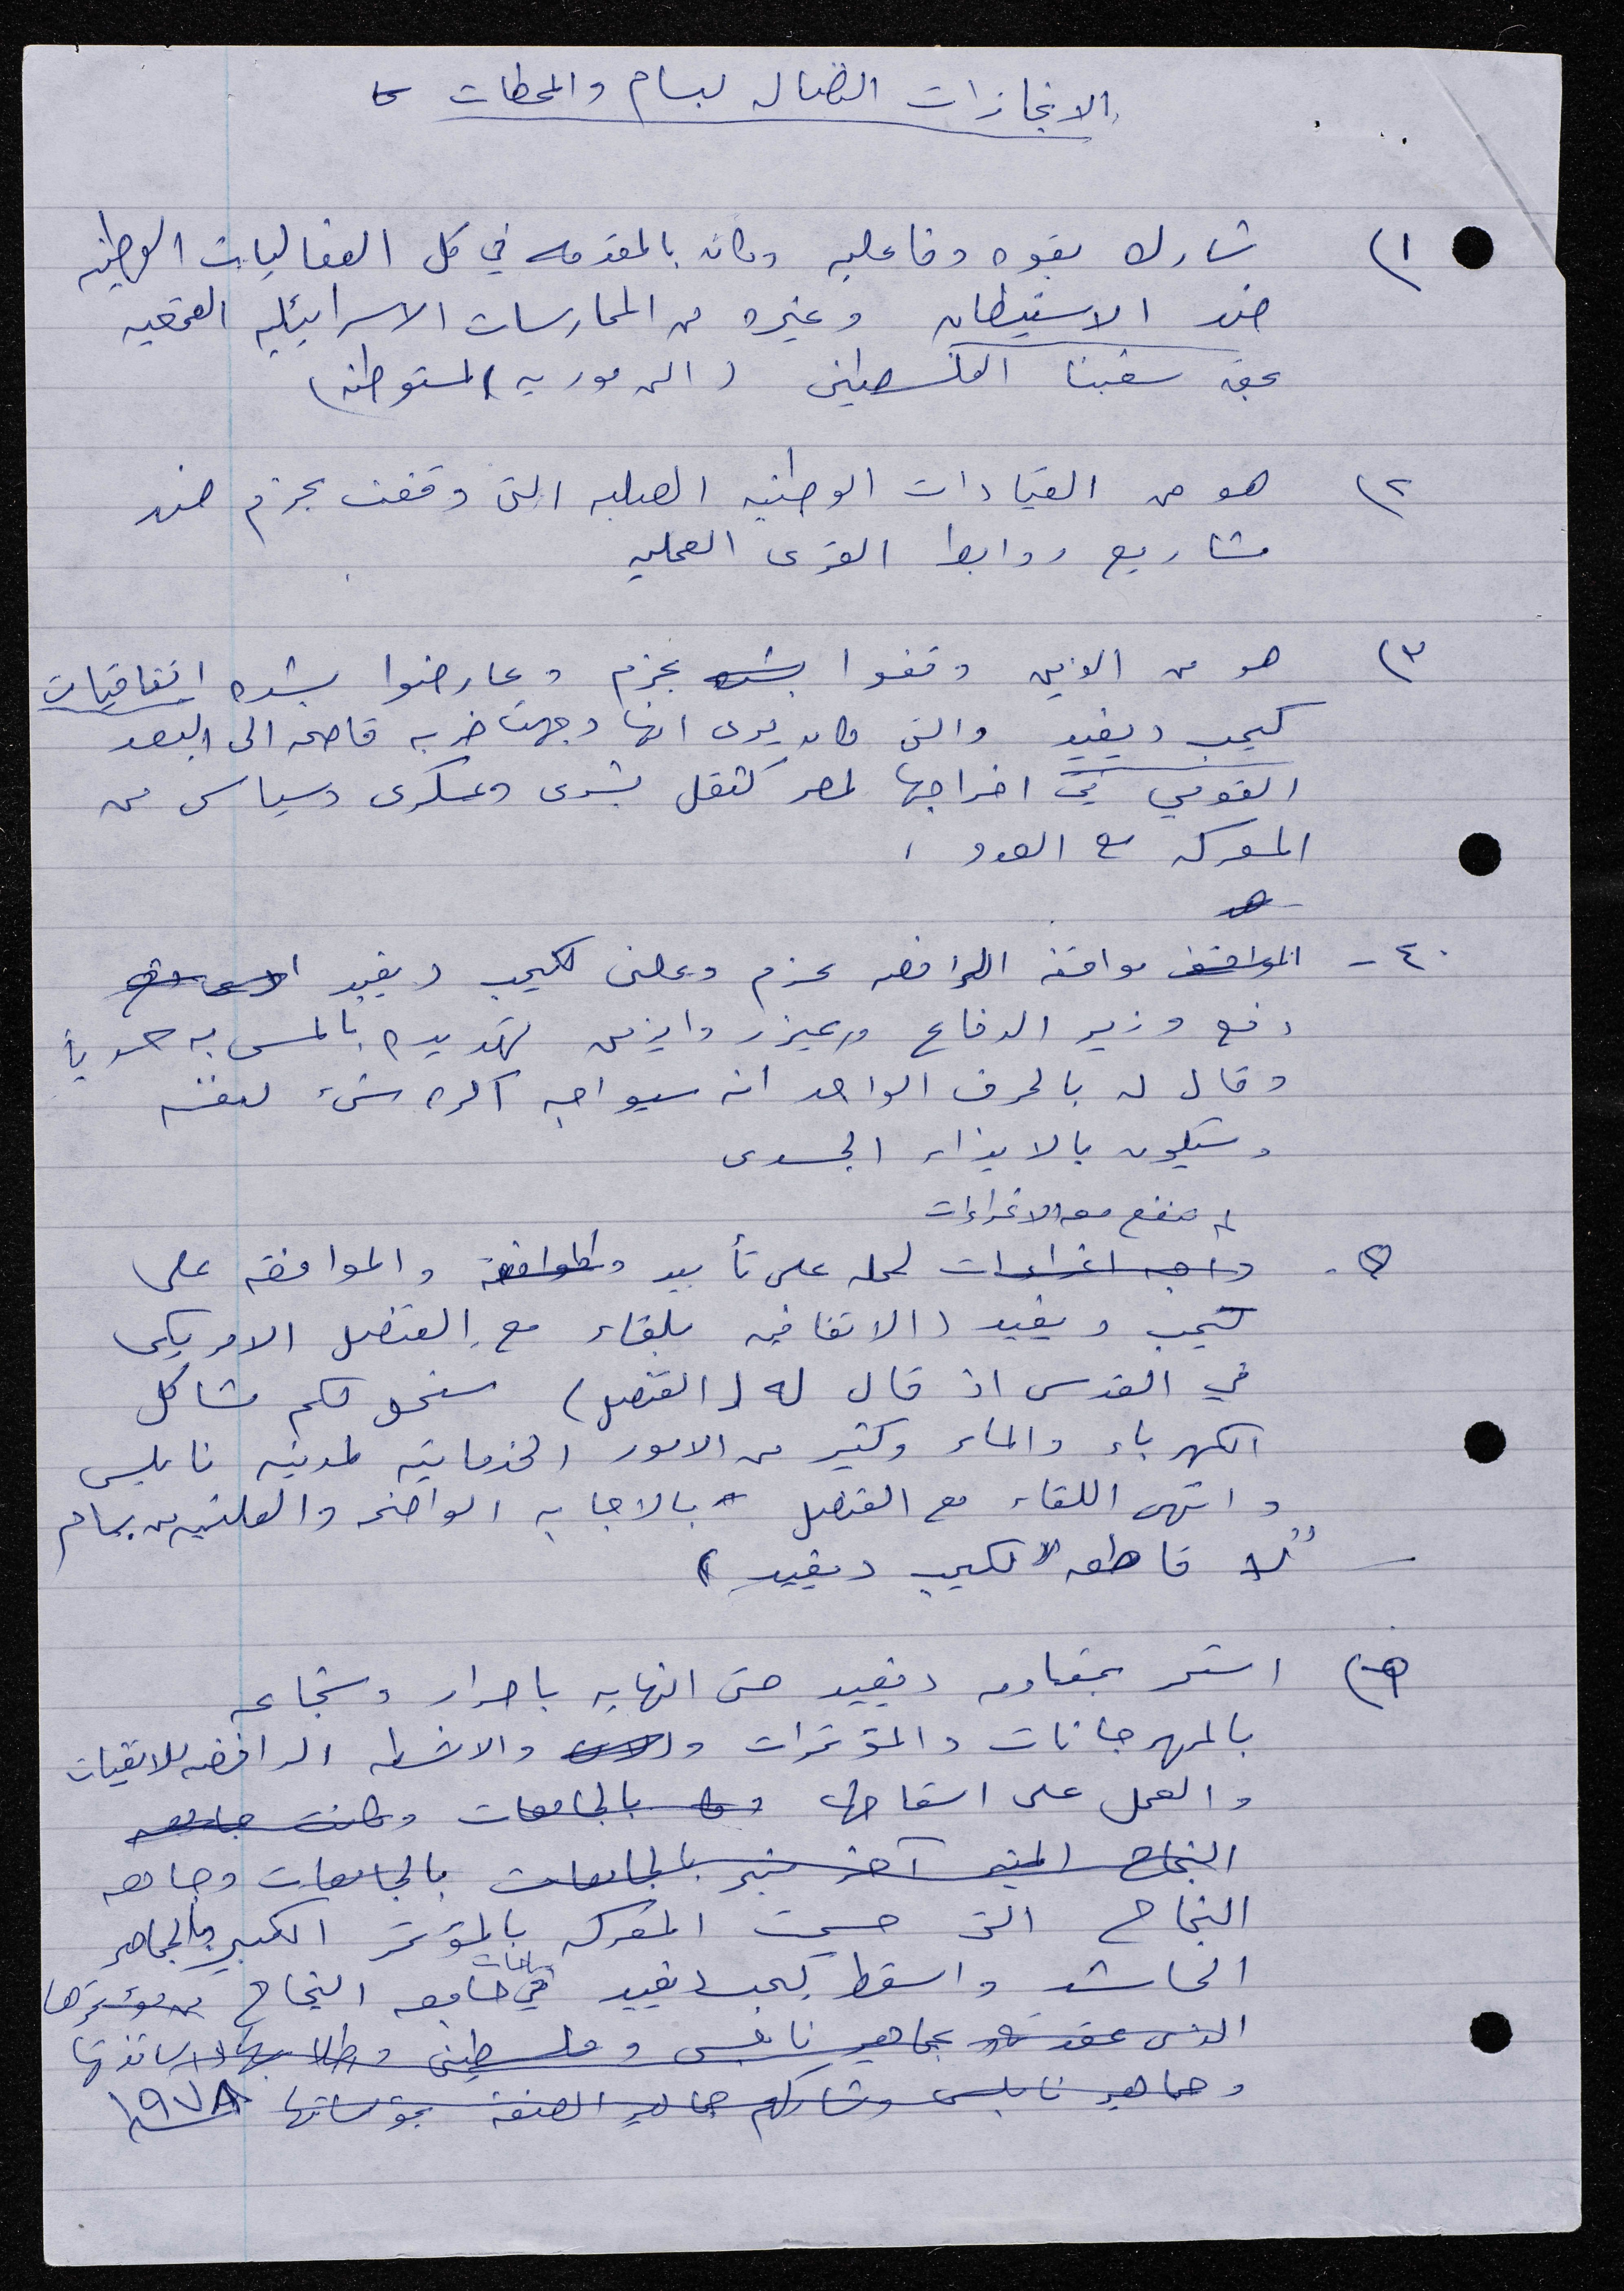 الانجازات النضاله لبسام والمحطات
١) شارك بقوه وفاعليه وكان بالمقدمه في كل الفعاليات الوطنيه
ضد الاستيطان وغيره من الممارسات الاسرائيليه القمعيه
بحق شعبنا الفلسطيني (الن موريه المستوطنه)
٢) هو من القيادات الوطنيه الصلبه التي وقفت بحزم ضد
مشاريع روابط القرى العمليه
٣) هو من الذين وقفوا بشده بحزم وعارضوا بشده اتفاقيات
كيمب ديفيد والتى كان يرى انها وجهت ضربه قاصمه الى البعد
القومي في اخراجها لمصر كثقل بشرى وعسكرى وسياسى من
المعركه مع العدو
هو
٤ - المواقف مواقفه الرافضه بحزم وعلنى لكيمب ديفيد
دفع وزير الدفاع عيزر وايزمن تهديده بالمس به جسدياً
وقال له بالحرف الواحد انه سيواجه اكره شىء لنفسه
وستكون بالايذاء الجسدى
لم تنفع معه الاغراءات
٥. واجه اغراءات لحمله على تأييد والموافقه والموافقه على
كيمب ديفيد (الاتفاقيه بلقاء مع القنصل الامريكى
في القدس اذ قال له (القنصل) سنحل لكم مشاكل
الكهرباء والماء وكثير من الامور الخدماتيه لمدينه نابلس
وانتهى اللقاء مع القنصل بالاجابه الواضحه والعلنيه من بسام
"لا قاطعه" لكيمب ديفيد)
استمر بمقاومه ديفيد حتى النهايه باصرار وشجاعه
بالمهرجانات والمؤتمرات والانشطه الرافضه للاتفيات
والعمل على اسقاطها بالجامعات وكانت جامعه
النجاح المنبر آخر منبر بالجامعات بالجامعات وجامعه
النجاح التى حسمت المعركه بالمؤتمر الكبير والجماهير
الحاشد واسقط كيمب ديفيد في جامعه النجاح من مؤتمرها
الذى عقدته بجماهير نابلس وفلسطين وطلابها واساتذتها
وجماهير نابلس وشاركهم جماهير الضفه بمؤسساتها ١٩٧٨